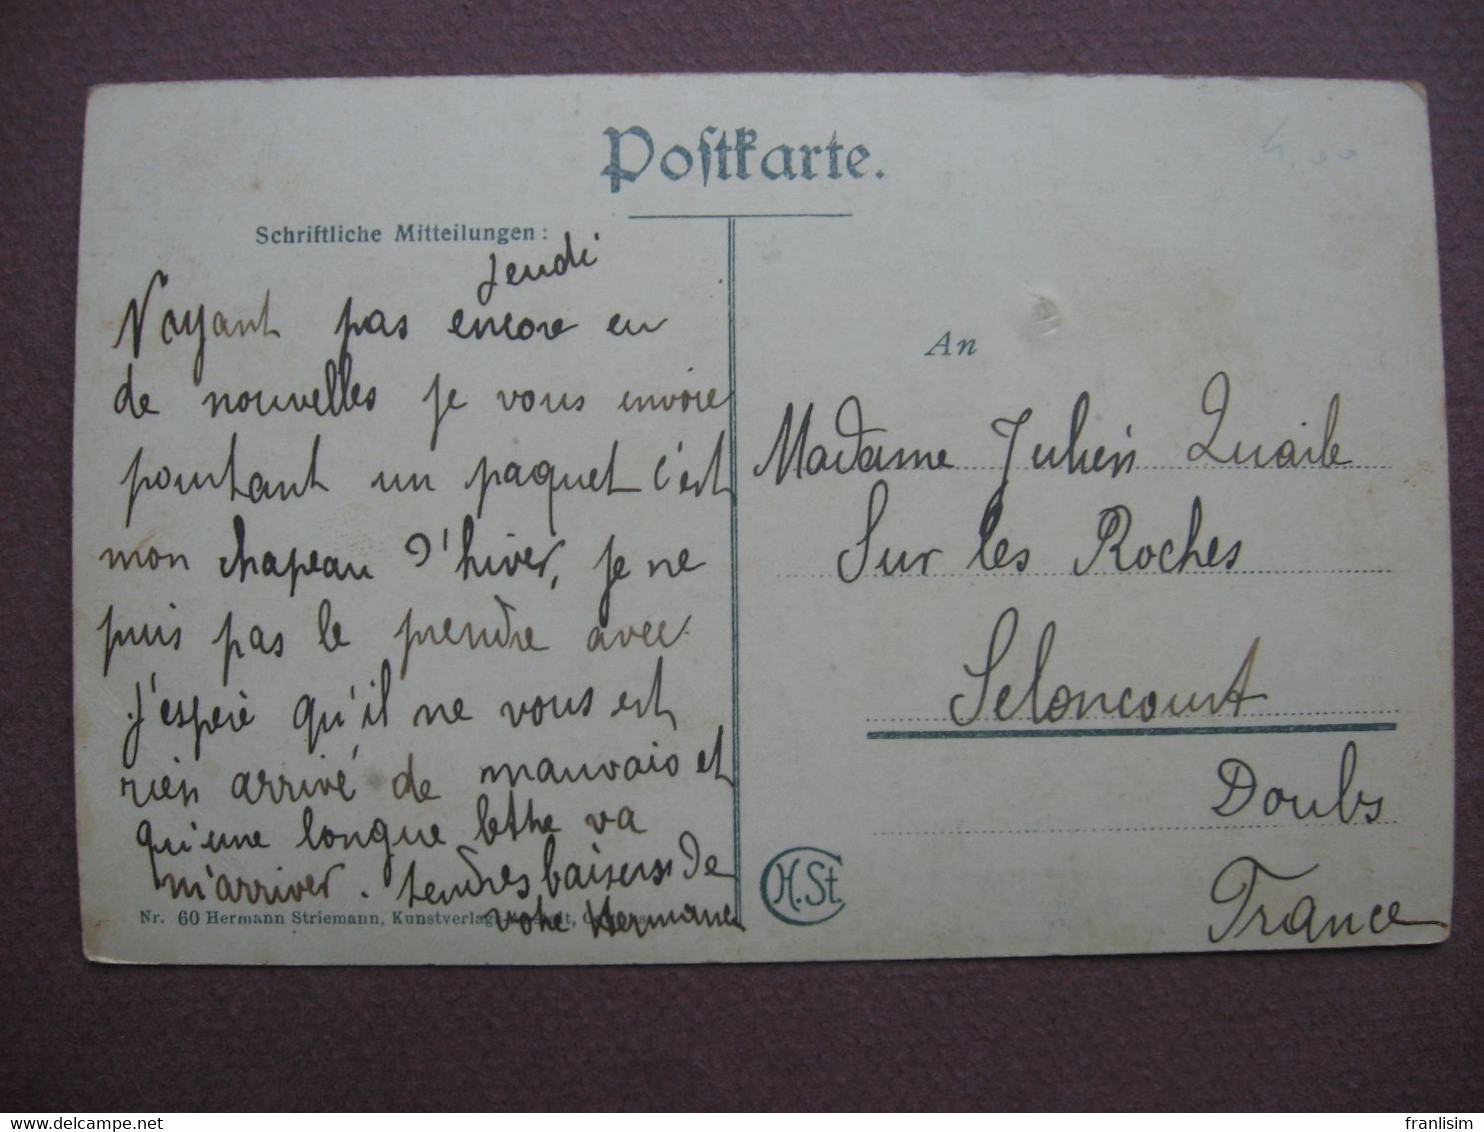 Postkarte.
Schriftliche Mitteilungen:
Jeudi
N'ayant pas encore eu
de nouvelles je vous envoie
pourtant un paquet c'est
mon chapeau d'hiver, je ne
puis pas le prendre avec.
J'espère qu'il ne vous est
rien arrivé de mauvais et
qu'une longue lettre va
m'arriver. tendres baisers de
votre Hermance
Nr. 60 Hermann Striemann, Kunstverlags
H.St.
4.00
An
Madame Julien Quaile
Sur les Roches
Seloncourt
Doubs
France
delcampe.net
franlisim